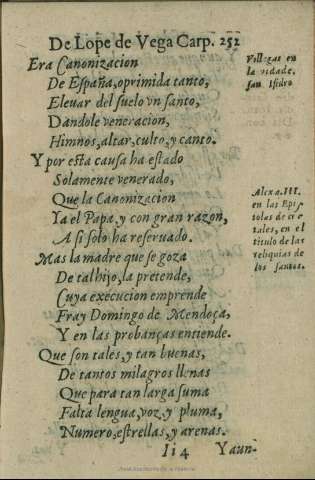 De Lope de Vega Carp. 251
Era Canonizacion
De España, oprimida tanto,
Eleuar del suelo vn santo,
Dandole veneracion,
Himnos, altar, culto, y canto.
Y por esta causa ha estado
Solamente venerado,
Que la Canonizacion
Ya el Papa, y con gran razon,
A si solo ha reseruado.
Mas la madre que se goza
De tal hijo, la pretende,
Cuya execucion emprende
Fray Domingo de Mendoça,
Y en las probanças entiende.
Que son tales, y tan buenas,
De tantos milagros llenas
Que para tan larga suma
Falta lengua, voz, y pluma,
Numero, estrellas, y arenas.
Ii 4 Y aun-
Villegas en
la vida de.
san Isidro
Alexa. III.
en las Epis
tolas de cre
tales, en el
titulo de las
reliquias de
los santos.